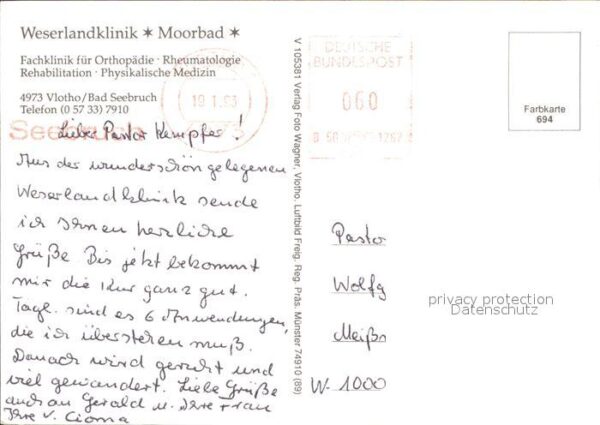 Weserlandklinik ✶ Moorbad ✶
Fachklinik für Orthopädie · Rheumatologie
Rehabilitation · Physikalische Medizin
4973 Vlotho/Bad Seebruch
Telefon (0 57 33) 7910
Seebruch
19.1.93
4973
DEUTSCHE
BUNDESPOST
060
Farbkarte
694
V 105381 Verlag Foto Wagner, Vlotho. Luftbild Freig. Reg. Präs. Münster 74910 (89)
Lieber Pastor Kempfer!
Aus der wunderschön gelegenen
Weserlandklinik sende
ich Ihnen herzliche
Grüße Bis jetzt bekommt
mir die Kur ganz gut.
Tägl. sind es 6 Anwendungen,
die ich überstehen muß.
Danach wird geruht und
viel gewandert. Liebe Grüße
auch an Gerald u. Ihre Frau
Ihre V. Cioma
Pastor
Wolfg
Meißn
W- 1000
privacy protection
Datenschutz